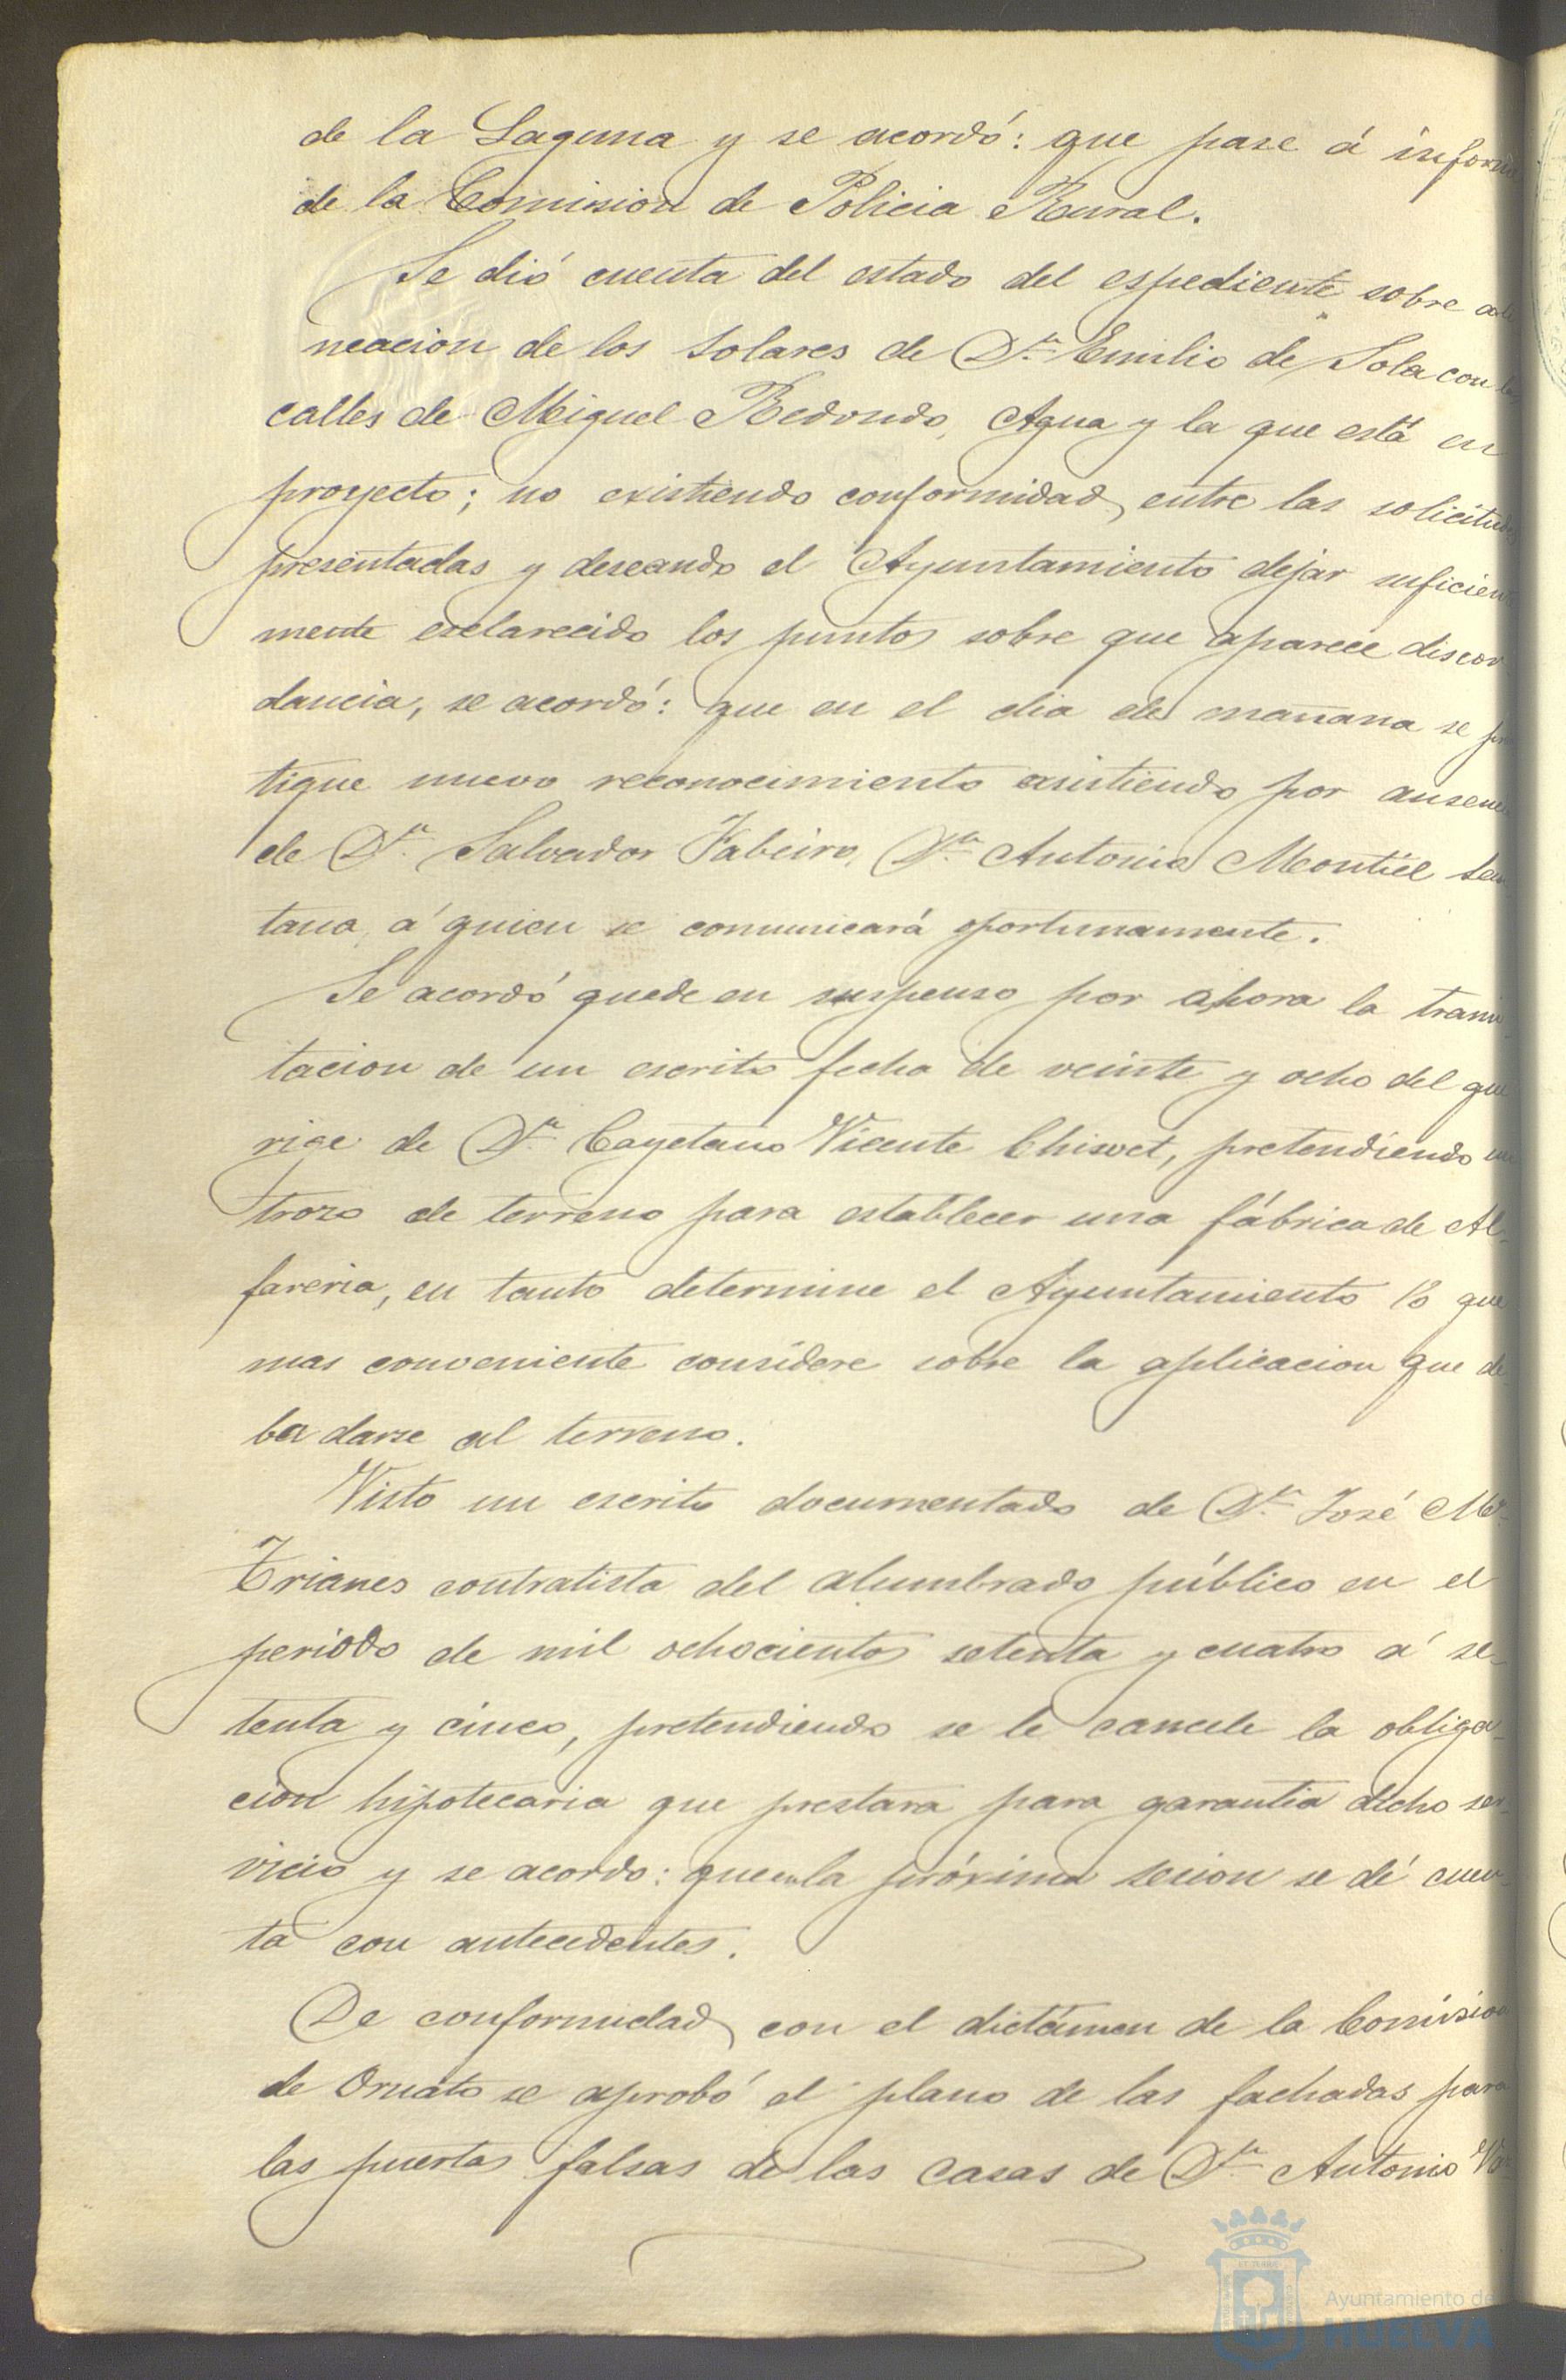 de la Laguna y se acordó: que pase á inform
de la Comision de Policia Rural.
Se dió cuenta del estado del espediente sobre
neacion de los Solares de Dn. Emilio de Sola con
calles de Miguel Redondo, Agua y la que está en
proyecto; no existiendo conformidad entre las solicitu
presentadas y deseando el Ayuntamiento dejar suficien
mente esclarecido los puntos sobre que aparece discor
dancia, se acordó: que en el dia de mañana se
tique nuevo reconocimiento asistiendo por ausen
de Dn. Salvador Dn. Antonio Montiel San
tana, á quien se comunicará oportunamente.
Se acordó quede en suspenso por ahora la trami
tacion de un escrito fecha de veinte y ocho del que
rige de Dn. Cayetano Vicente pretendiendo un
trozo de terreno para establecer una fábrica de Al-
fareria, en tanto determine el Ayuntamiento lo que
mas conveniente considere sobre la aplicacion que de
ba darse al terreno.
Visto un escrito documentado de Dn. José Ma.
Trianes contratista del alumbrado público en el
periodo de mil ochocientos setenta y cuatro á se-
tenta y cinco, pretendiendo se le cancele la obliga-
cion hipotecaria que prestara para garantia dicho ser-
vicio y se acordo: que en la próxima secion se dé cuen-
ta con antecedentes.
De conformidad con el dictámen de la Comisio
de Ornato se aprobó el plano de las fachadas para
las puertas falsas de las casas de Dn. Antonio
Ayuntamiento de
HUELVA